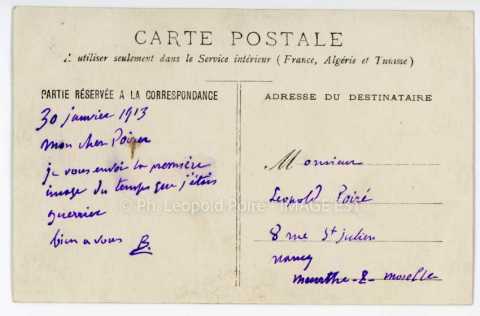 CARTE POSTALE
A utiliser seulement dans le Service intérieur (France, Algérie et Tunisie)
PARTIE RÉSERVÉE A LA CORRESPONDANCE
30 janvier 1913
mon cher Poirer
je vous envoi la première
image du temps que j'étais
guerrier
bien a vous B.
ADRESSE DU DESTINATAIRE
Monsieur
Leopold Poiré
8 rue St julien
nancy
meurthe-&-moselle
© Ph. Leopold Poiré - IMAGE EST